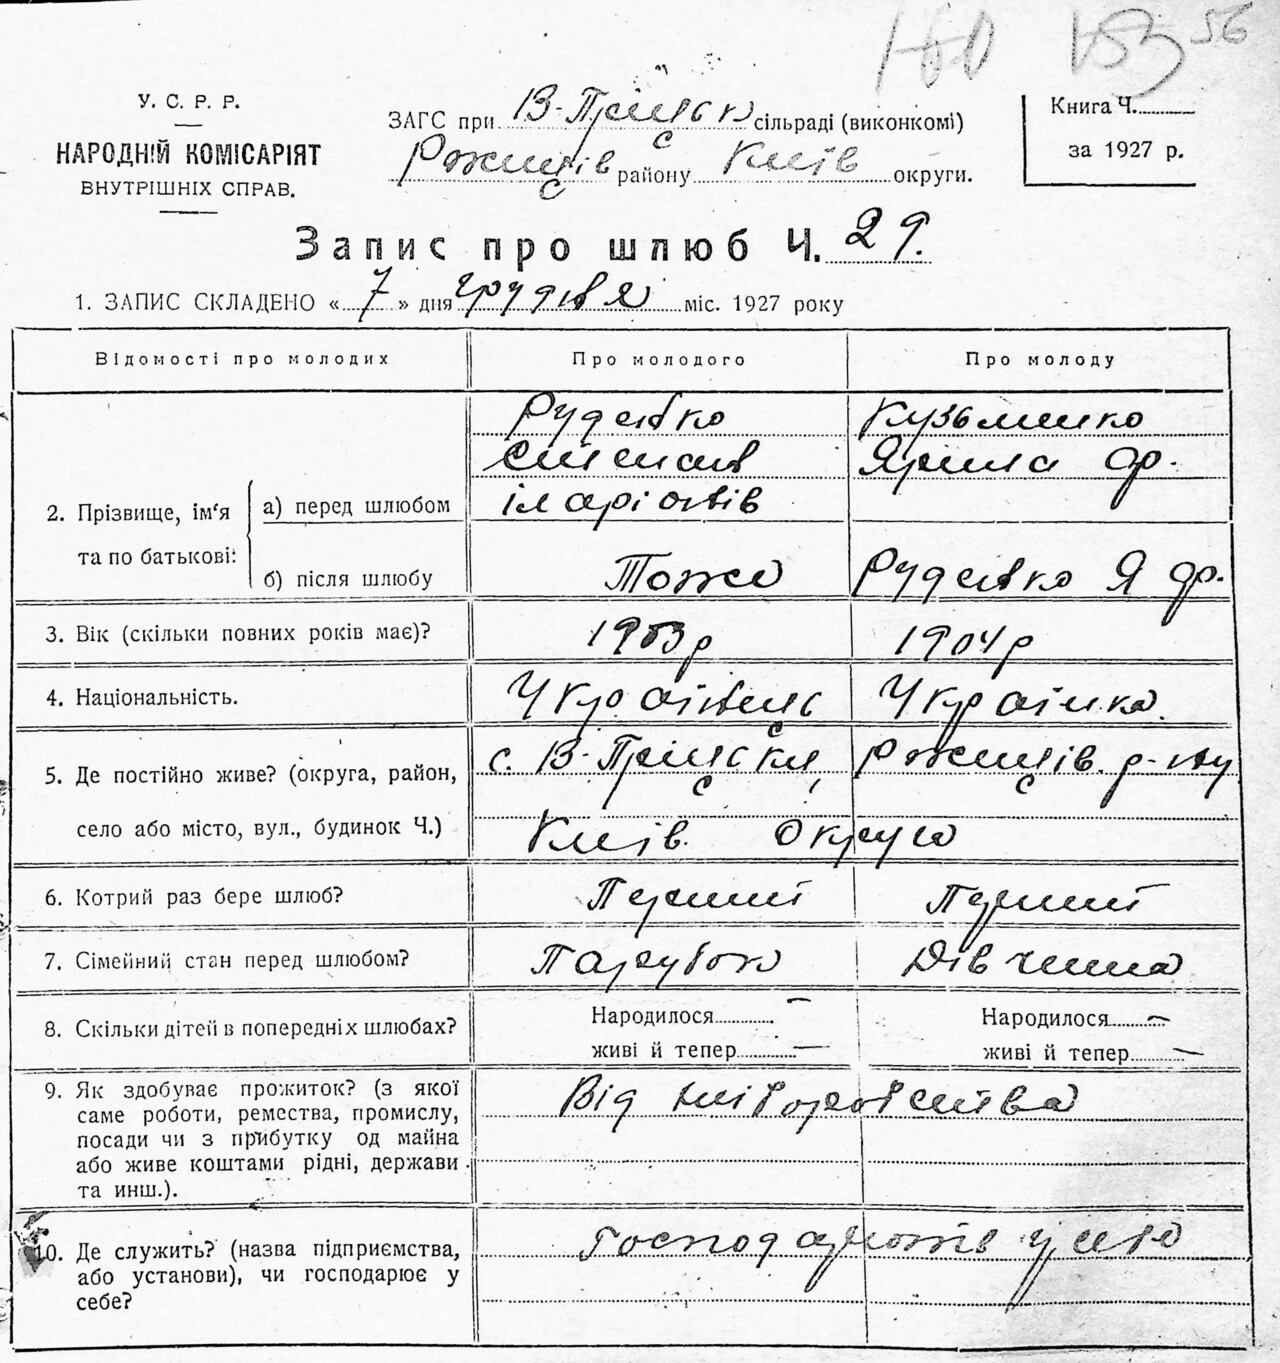 160 153 56
У. С. Р. Р.
НАРОДНІЙ КОМІСАРІЯТ
ВНУТРІШНІХ СПРАВ.
ЗАГС при В-Пріцьк сільраді (виконкомі)
Рожиців району Київ округи.
Книга Ч.
за 1927 р.
Запис про шлюб Ч. 29.
1. ЗАПИС СКЛАДЕНО « 7 » дня грудня міс. 1927 року
Відомості про молодих
Про молодого
Про молоду
2. Прізвище, ім'я та по батькові:
а) перед шлюбом
Руденко
Іларіонів
Кузьменко
Ярина Ф.
б) після шлюбу
Тоже
Руденко Я Ф.
3. Вік (скільки повних років має)?
1903р
1904р
4. Національність.
Українець
Українка
5. Де постійно живе? (округа, район,
село або місто, вул., будинок Ч.)
с. В-Пріцьки, Рожиців. р-ну
Київ. округа
6. Котрий раз бере шлюб?
Перший
Перший
7. Сімейний стан перед шлюбом?
Парубок
Дівчина
8. Скільки дітей в попередніх шлюбах?
Народилося —
живі й тепер —
Народилося —
живі й тепер —
9. Як здобуває прожиток? (з якої
саме роботи, ремества, промислу,
посади чи з прибутку од майна
або живе коштами рідні, держави
та инш.).
Від хліборобства
10. Де служить? (назва підприємства,
або установи), чи господарює у
себе?